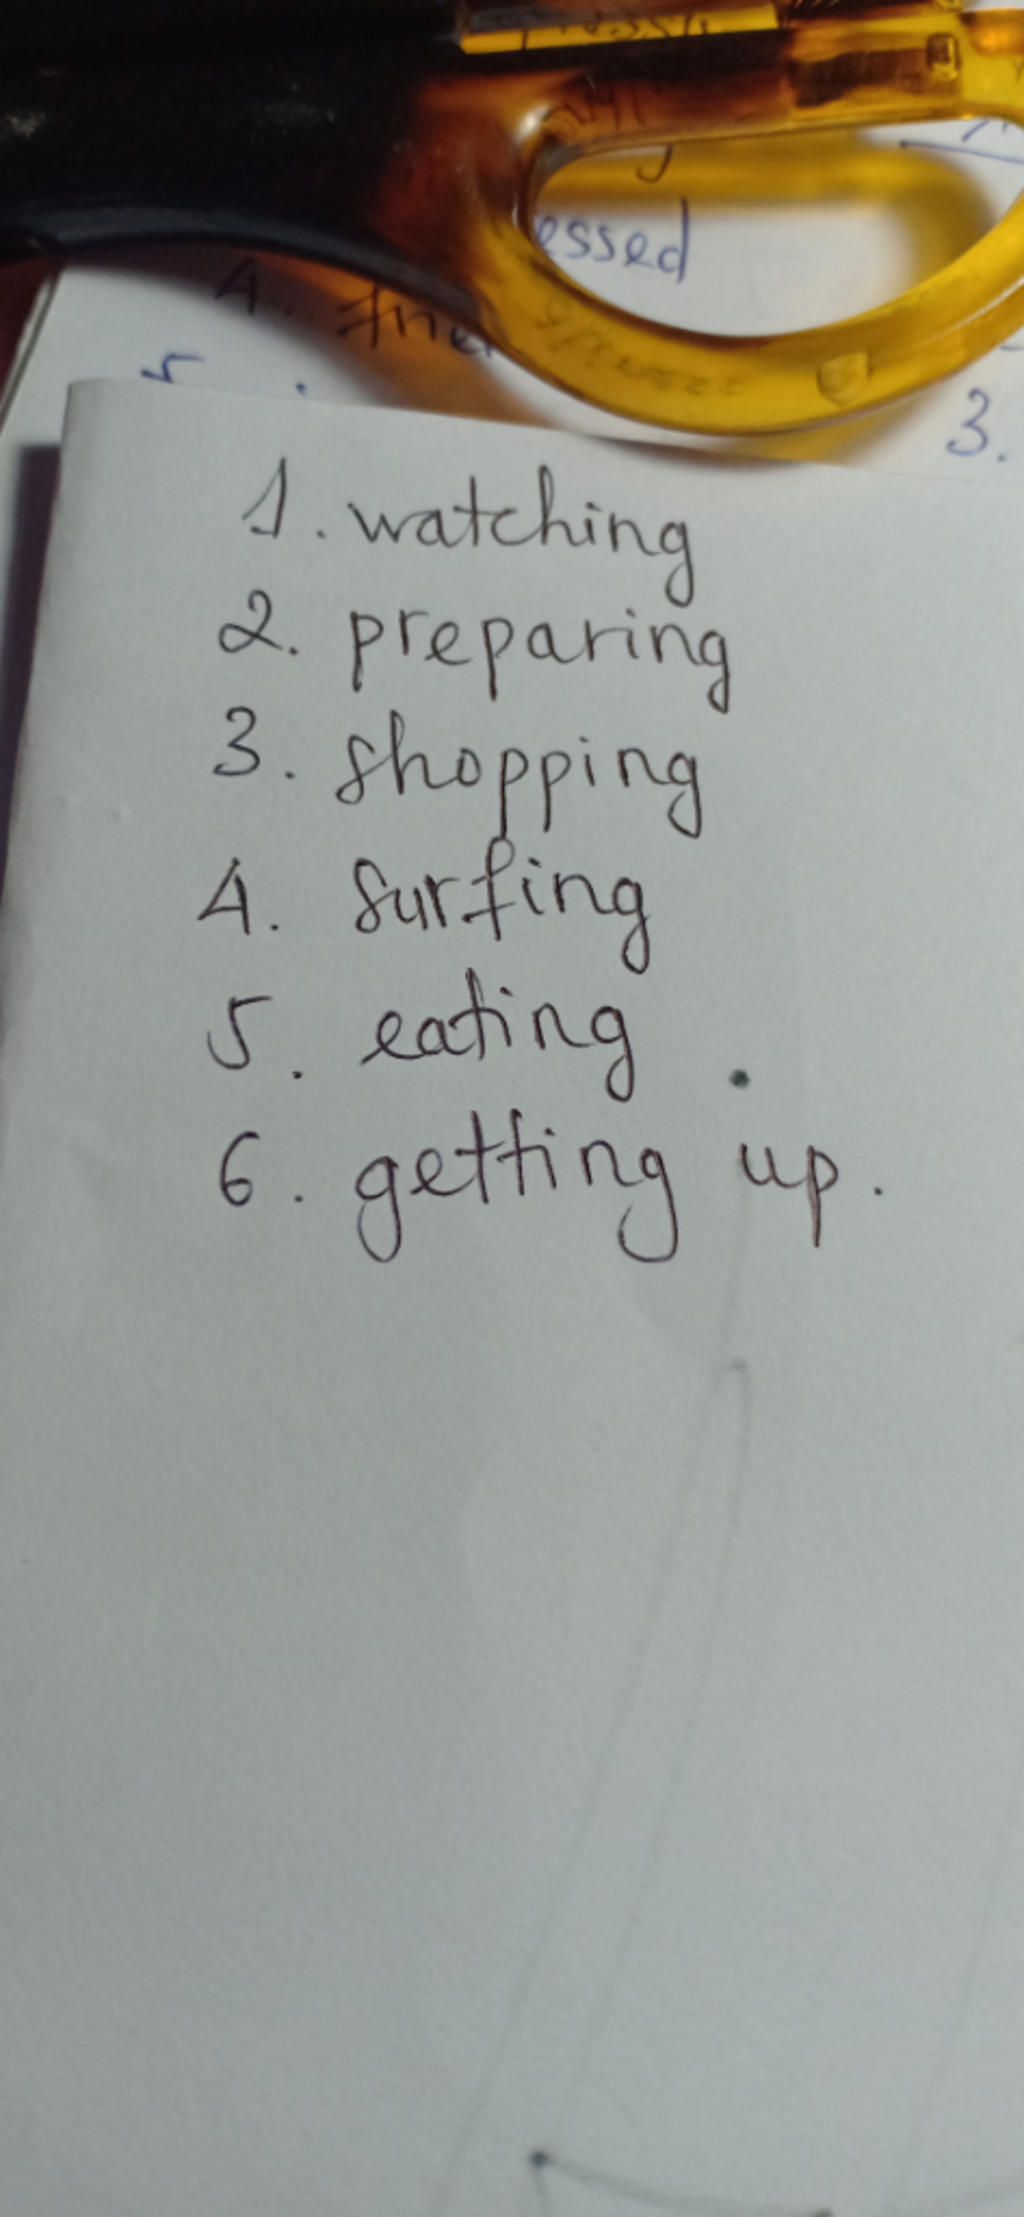 essed
4.
5.
3.
1. watching
2. preparing
3. shopping
4. surfing
5. eating
6. getting up.